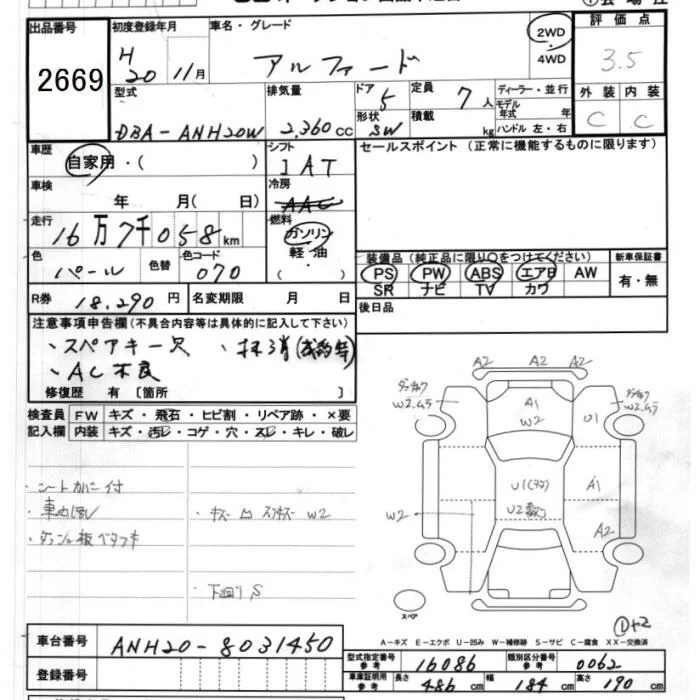 出品番号
2669
初度登録年月
H
20 11月
車名・グレード
アルファード
2WD
4WD
評価点
3.5
型式
DBA-ANH20W
排気量
2,360 cc
ドア
5
形状
SW
定員
7 人
積載
kg
ディーラー・並行
モデル
年式 年
ハンドル 左・右
外装 内装
C C
車歴
自家用・( )
シフト
IAT
セールスポイント (正常に機能するものに限ります)
車検
年 月( 日)
冷房
AAC
走行
16万7千058km
燃料
ガソリン
軽・油
( )
色
パール
色替
色コード
070
装備品 (純正品に限り○をつけてください)
PS PW ABS エアB AW
SR ナビ TV カワ
新車保証書
有・無
R券 18,290円
名変期限 月 日
後日品
注意事項申告欄(不具合内容等は具体的に記入して下さい)
、スペアキー欠
、AC不良
修復歴 有〔箇所 〕
検査員
記入欄
FW キズ・飛石・ヒビ割・リペア跡・×要
内装 キズ・汚レ・コゲ・穴・スレ・キレ・破レ
・シートカバー付
・車内汚レ
・ダッシュ板ベタツキ
W2
・下廻りS
A2 A2 A2
W2
A1
W2
U1
W2
A1
U2
A2
W2
スペア
A－キズ E－エクボ U－凹み W－補修跡 S－サビ C－腐食 XX－交換済
車台番号
ANH20-8031450
登録番号
型式指定番号
参考
16086
類別区分番号
参考
0062
車庫証明用
参考
長さ 486 cm
幅 184 cm
高さ 190 cm